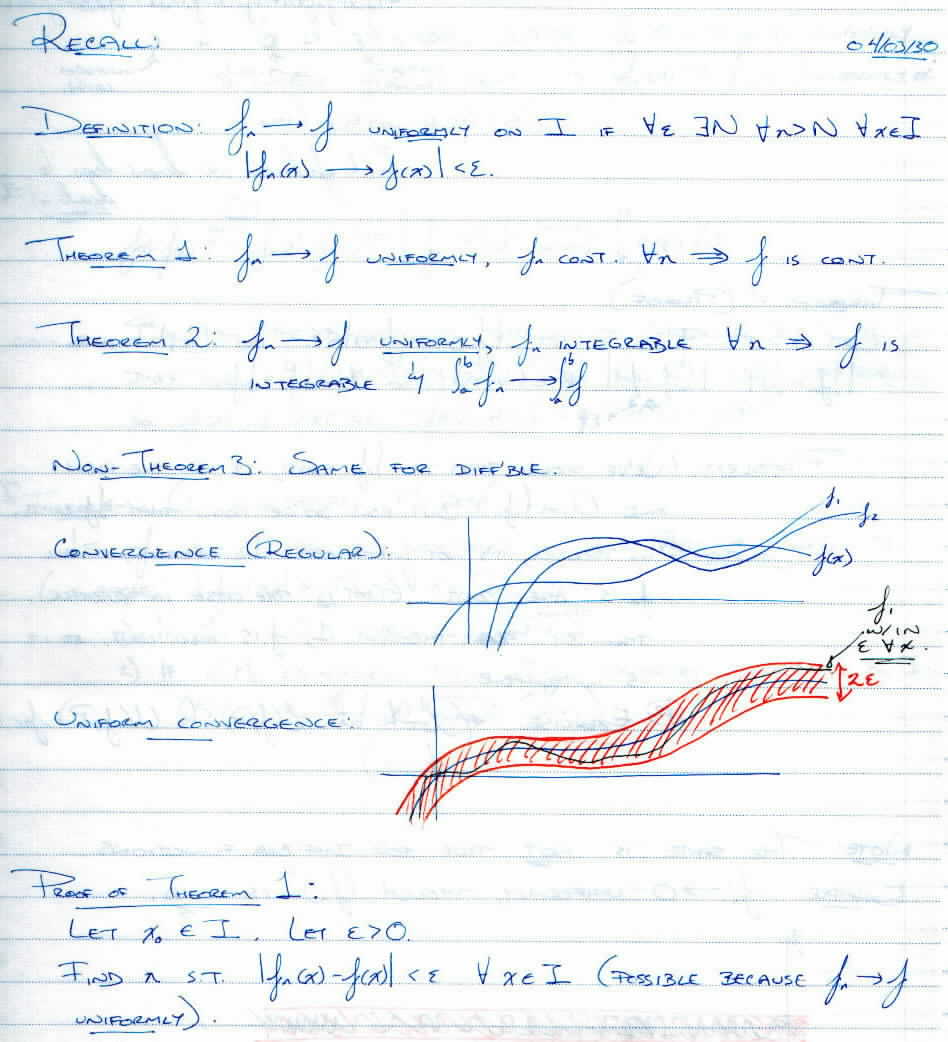 RECALL: 04/03/30
DEFINITION: fₙ → f UNIFORMLY ON I IF ∀ε ∃N ∀n>N ∀x∈I
|fₙ(x) → f(x)| < ε.
THEOREM 1: fₙ → f UNIFORMLY, fₙ CONT. ∀n ⇒ f IS CONT.
THEOREM 2: fₙ → f UNIFORMLY, fₙ INTEGRABLE ∀n ⇒ f IS
INTEGRABLE & ∫ₐᵇ fₙ → ∫ₐᵇ f
NON-THEOREM 3: SAME FOR DIFF'BLE.
f₁
f₂
CONVERGENCE (REGULAR):
f(x)
f₁
W/IN
ε ∀x.
2ε
UNIFORM CONVERGENCE:
PROOF OF THEOREM 1:
LET x₀ ∈ I. LET ε>0.
FIND n S.T. |fₙ(x)-f(x)| < ε ∀ x∈I (POSSIBLE BECAUSE fₙ → f
UNIFORMLY).